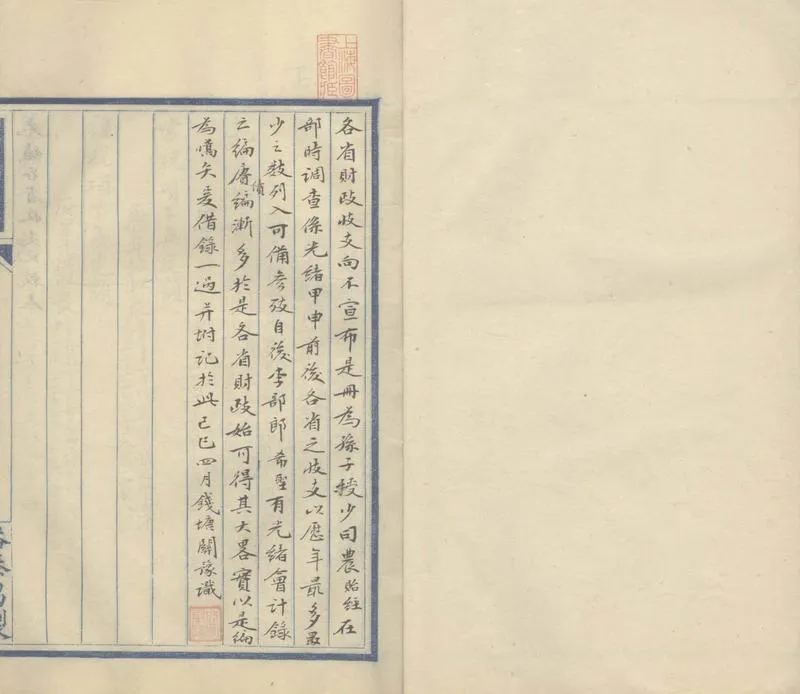 上海圖書館藏
各省財政收支向不宣布是冊為孫子授少司農貽經在
部時調查係光緒甲申前後各省之收支以歷年最多最
少之數列入可備參攷自後李部郎希聖有光緒會計錄
之編賡續編漸多於是各省財政始可得其大畧實以是編
為嚆矢爰借錄一過并坿記於此己巳四月錢塘關豫識